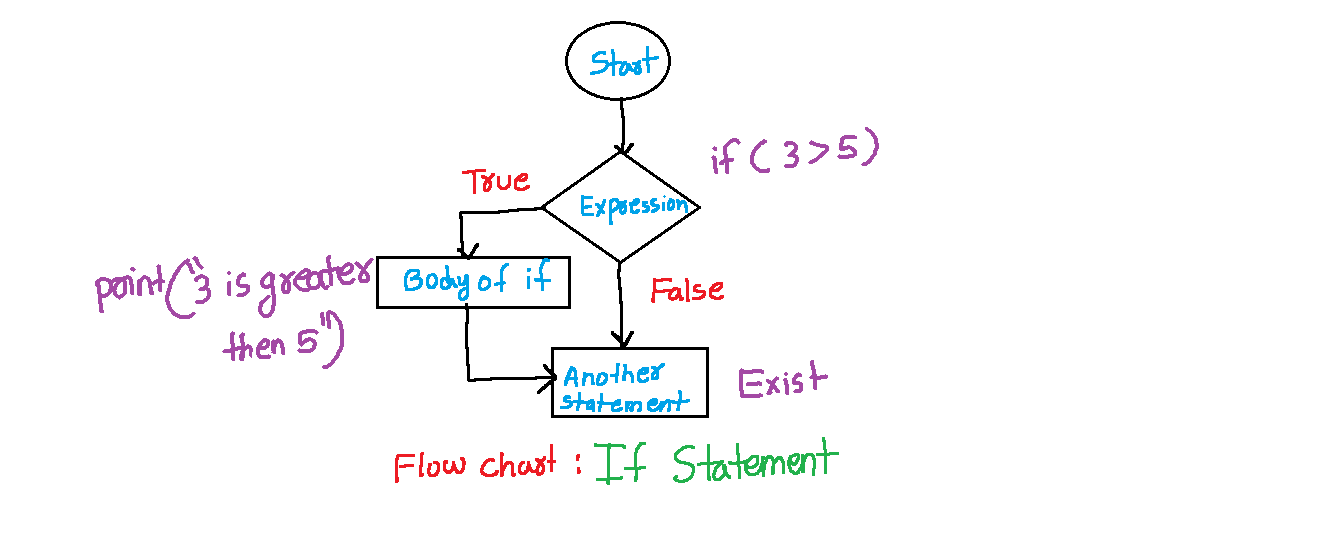 Start
if ( 3 > 5 )
True
Expression
print("3 is greater
then 5")
Body of if
False
Another
statement
Exist
Flow chart : If Statement